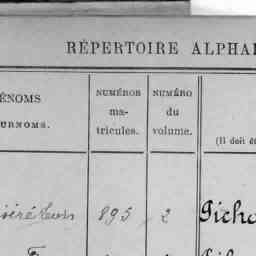 RÉPERTOIRE ALPHA
ÉNOMS
URNOMS.
NUMÉROS
ma-
tricules.
NUMÉRO
du
volume.
(Il doit ét
895
2
Picho